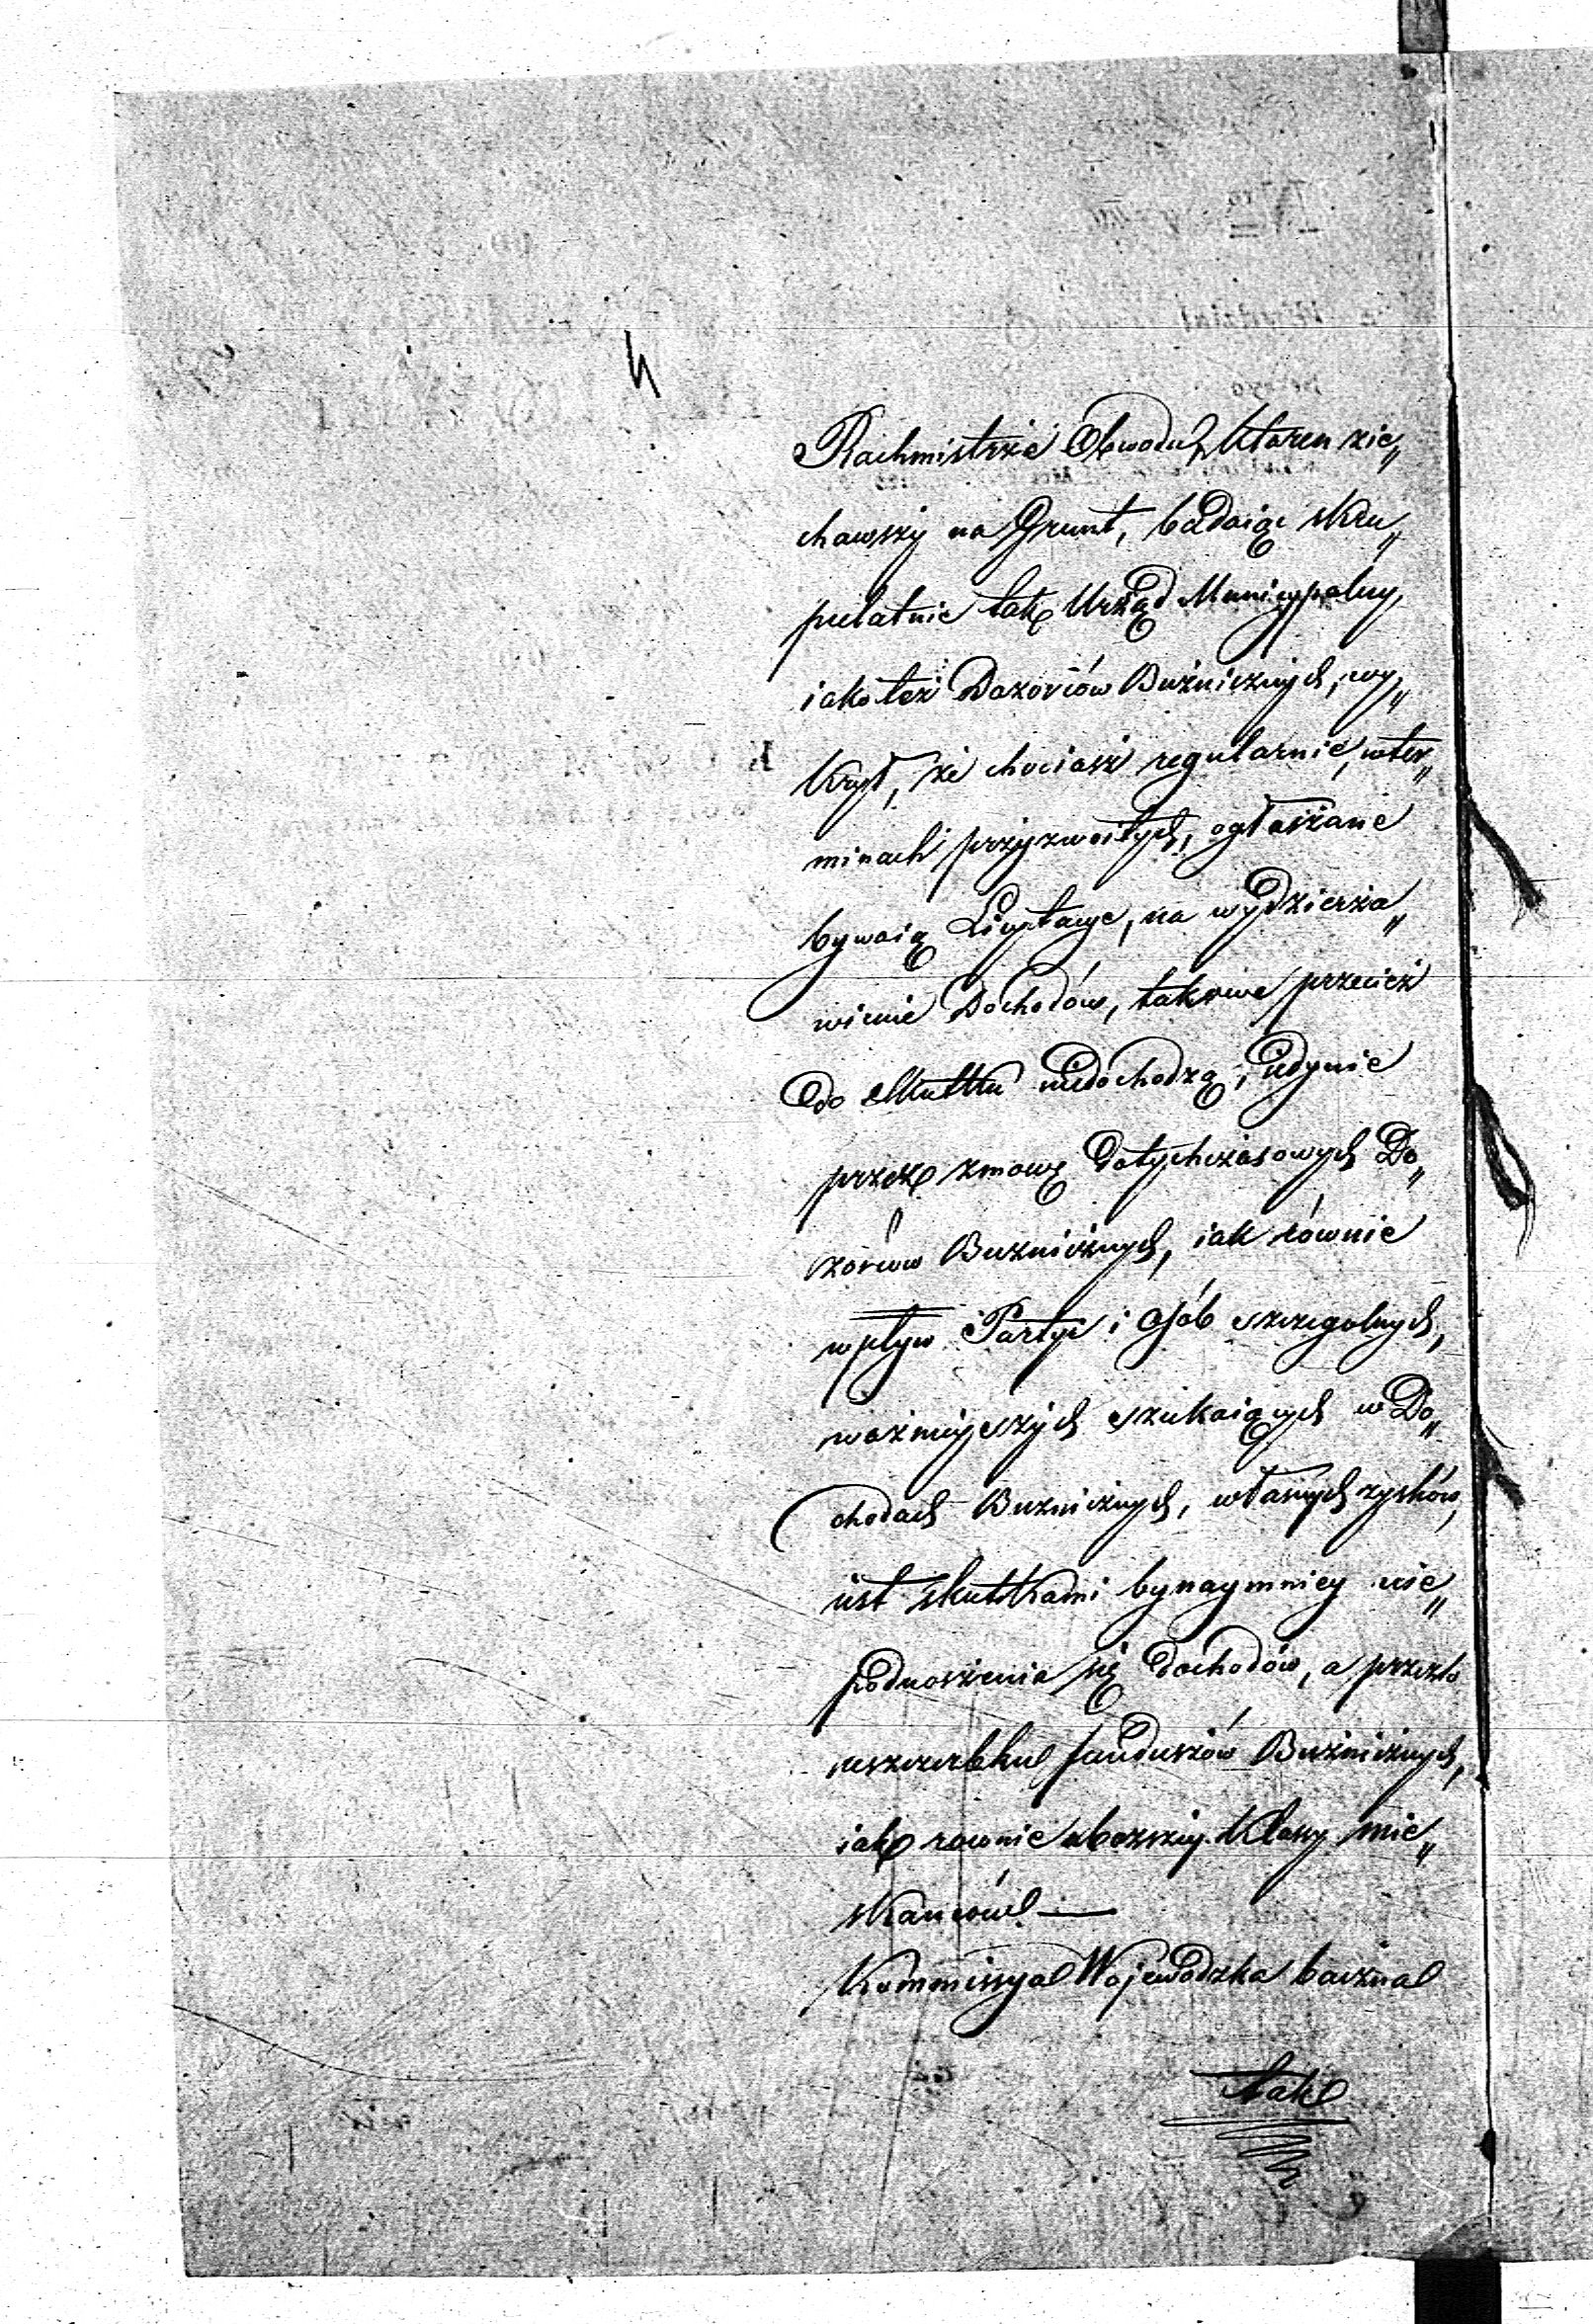 Rachmistrze Obwodu, który zie„
chawszy na Grunt, badaiąc skru„
pulatnie tak Urząd Municypalny,
iakoteż Dozorców Bużnicznych, wy„
krył, że chociasz regularnie, wter„
minach przyzwoitych, ogłaszane
bywaią Licytacye, na wydzierża„
wienie Dochodów, takowe przecież
do skutku niedochodzą, iedynie
przez zmowę dotychczasowych Do„
zorców Buznicznych, iak równie
wpływ Partyi i osób szczegolnych,
ważnieyszych szukaiących w Do„
chodach Buznicznych, własnych zysków,
iest skutkami bynaymniey nie„
podnoszenia się dochodów, a przezto
uszczerbku funduszów Bużnicznych,
iak rownie uboższey klassy mie„
szkańców. —
Kommissya Wojewódzka baczna
tak